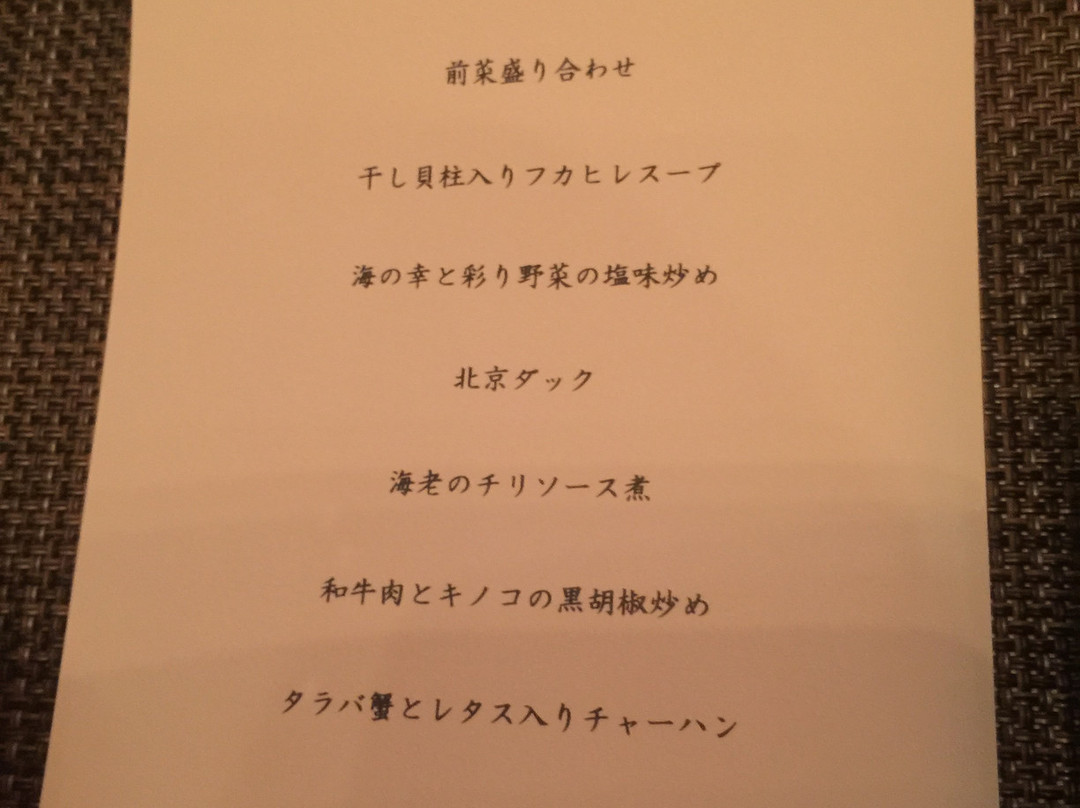 前菜盛り合わせ
干し貝柱入りフカヒレスープ
海の幸と彩り野菜の塩味炒め
北京ダック
海老のチリソース煮
和牛肉とキノコの黒胡椒炒め
タラバ蟹とレタス入りチャーハン